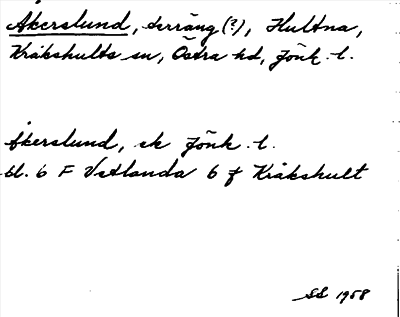 Åkerslund, terräng (?), Hultna,
Kråkshults sn, Östra hd, Jönk. l.
Åkerslund, ek Jönk. l.
bl. 6 F Vetlanda 6 f Kråkshult
SS 1958